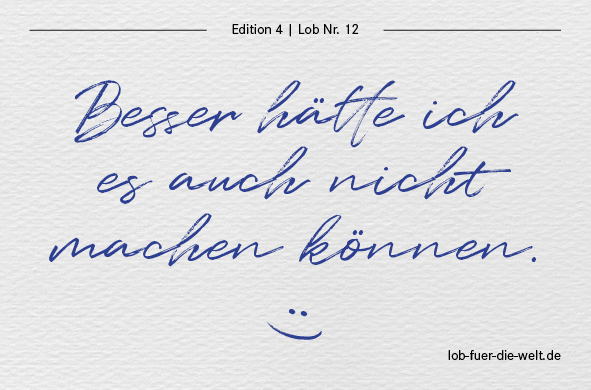 Edition 4 | Lob Nr. 12
Besser hätte ich
es auch nicht
machen können.
lob-fuer-die-welt.de